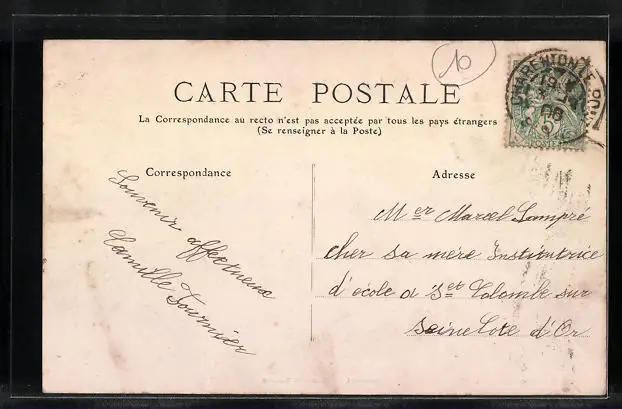 10
CHARENTON LE PONT
CARTE POSTALE
La Correspondance au recto n'est pas acceptée par tous les pays étrangers
(Se renseigner à la Poste)
Correspondance
Adresse
Souvenir affectueux
Camille Fournier
Mer Marcel Lampré
cher sa mère Institutrice
d'école a Set Colombe sur
Seine Cote d'Or